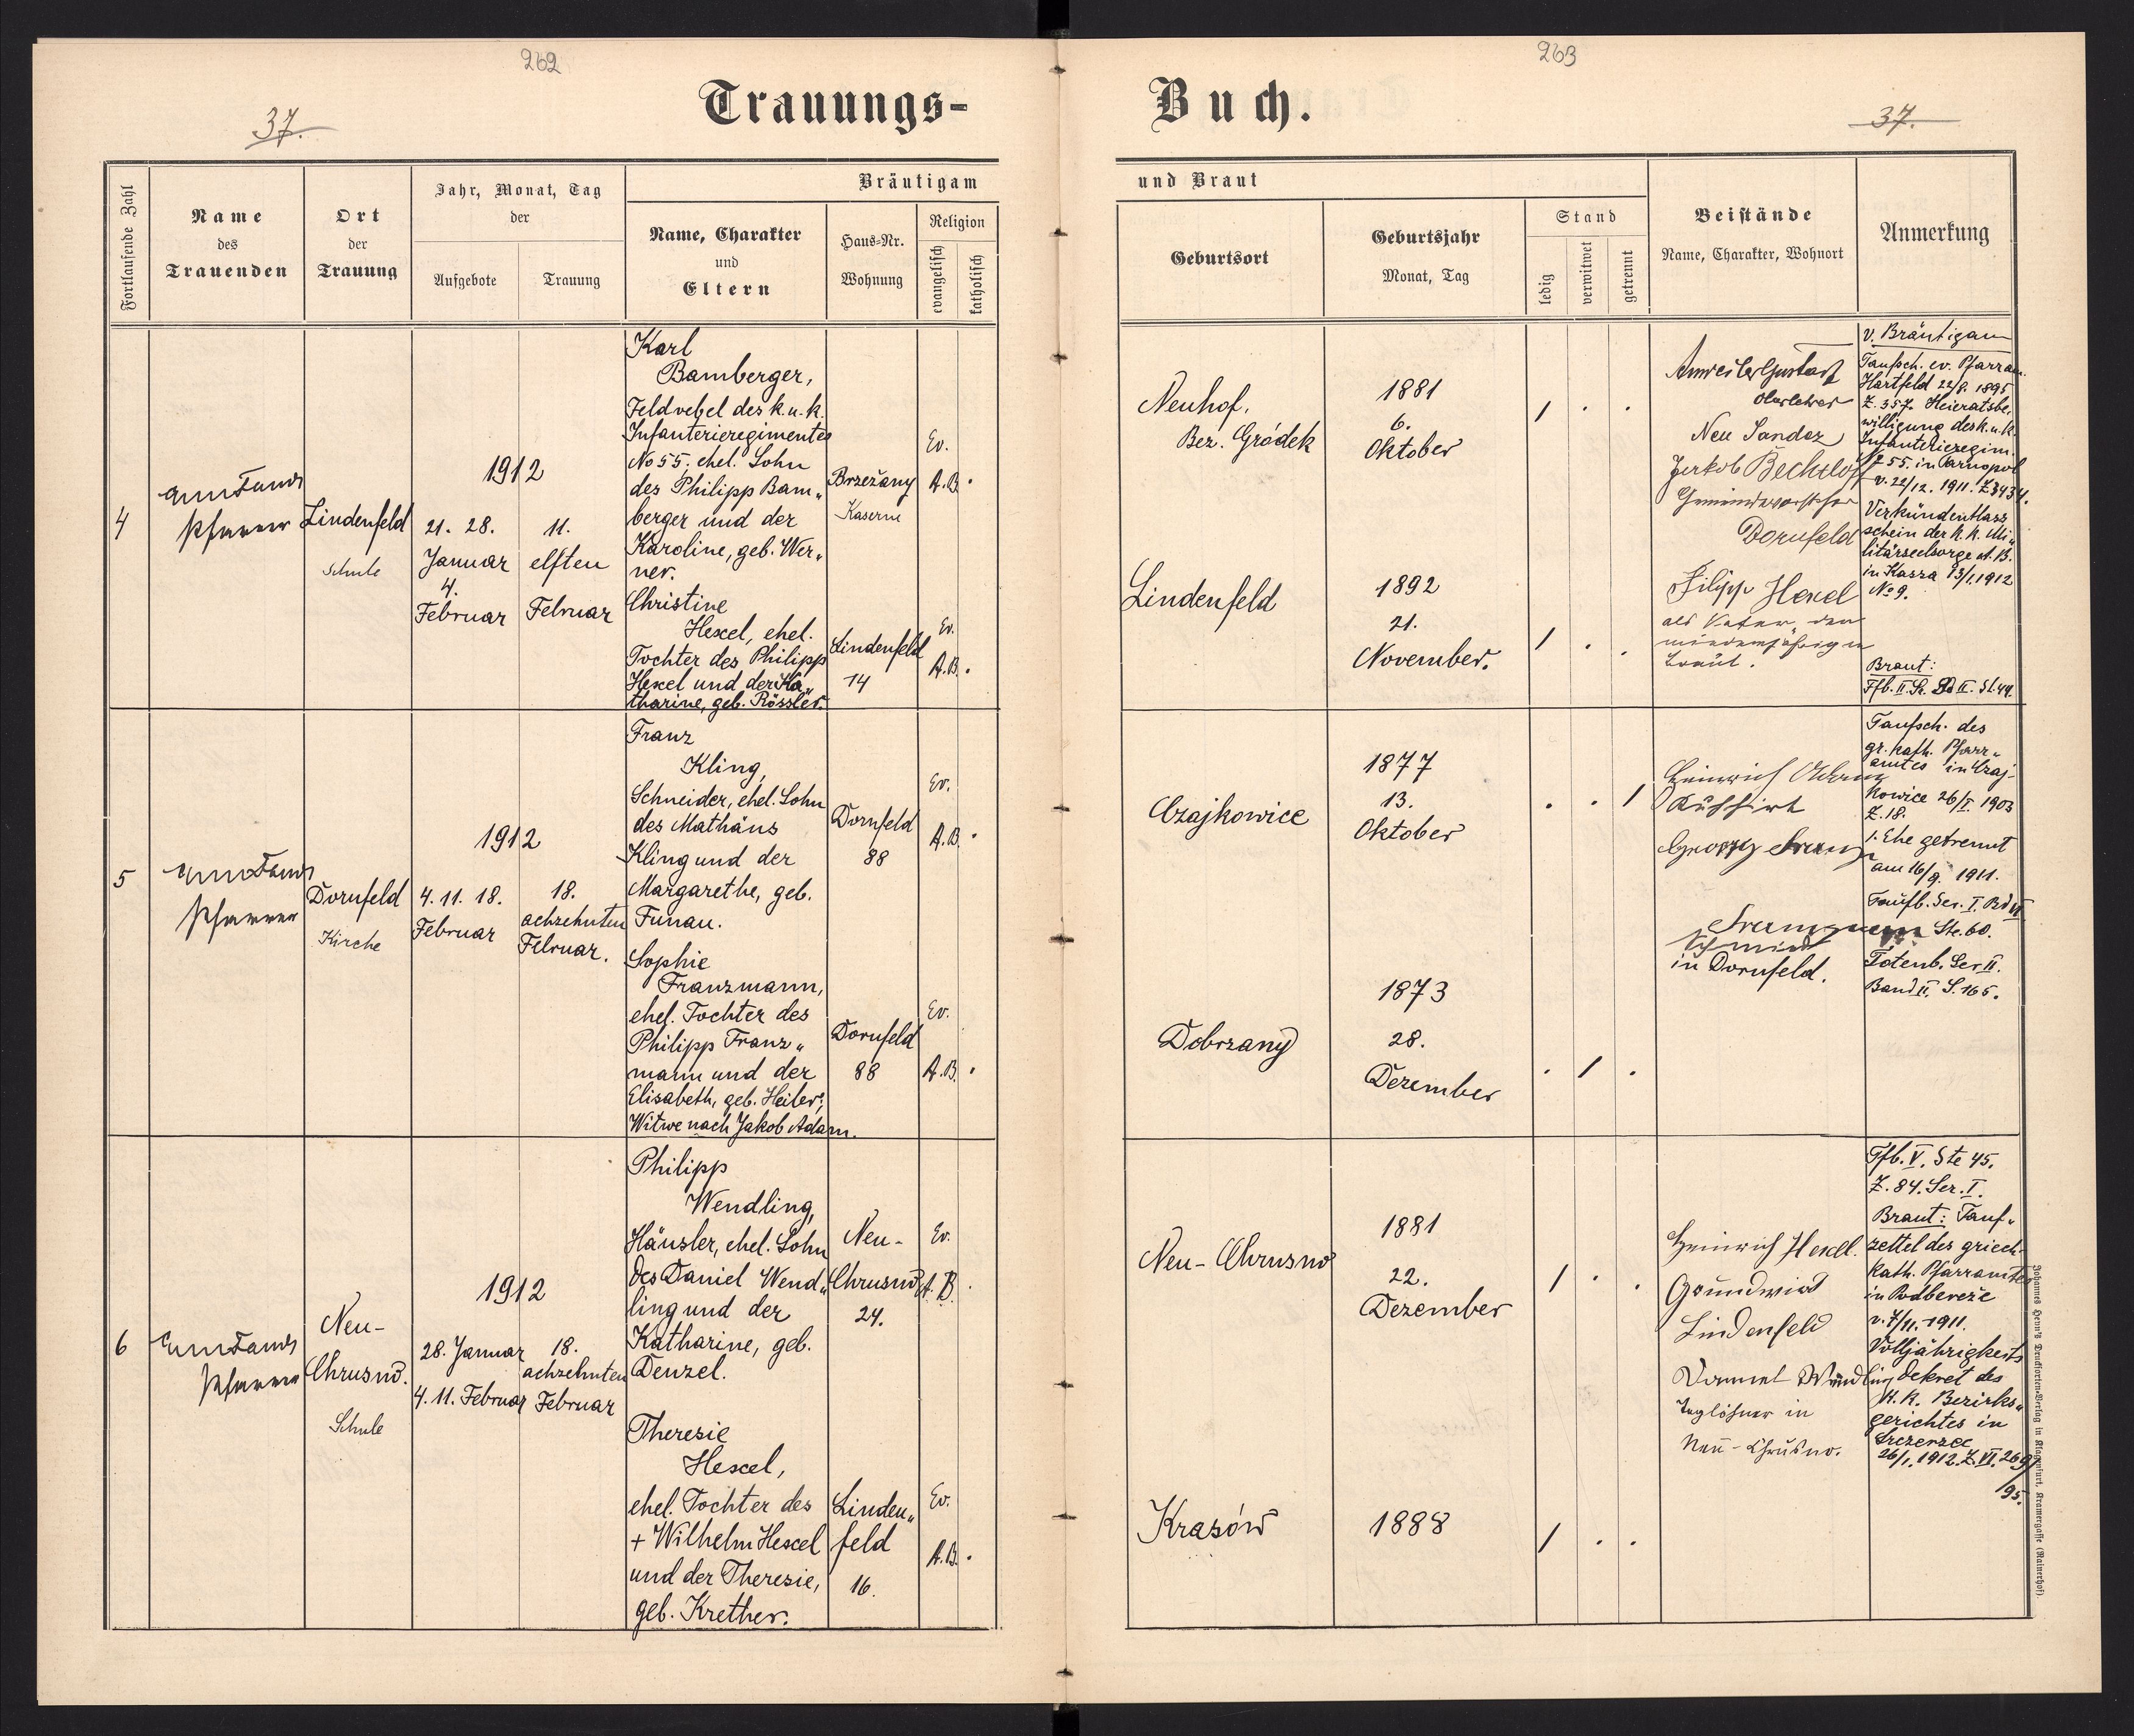 262
37.
Trauungs-
Fortlaufende Zahl
Name
des
Trauenden
Ort
der
Trauung
Jahr, Monat, Tag
der
Aufgebote
Trauung
Bräutigam
Name, Charakter
und
Eltern
Haus-Nr.
Wohnung
Religion
evangelisch
katholisch
4
Pfarrer
Lindenfeld
Schule
1912
21. 28.
Januar
4.
Februar
11.
elften
Februar
Karl
Bamberger,
Feldvebel des k. u. k.
Infanterieregimentes
No 55, ehel. Sohn
des Philipp Bam„
berger und der
Karoline, geb. Wer„
ner.
Brzežany
Kaserne
Ev.
A.B.
Christine
Hexel, ehel.
Tochter des Philipp
Hexel und der Ka„
tharine, geb. Rössler.
Lindenfeld
14
Ev.
A.B.
5
Pfarrer
Dornfeld
Kirche
1912
4. 11. 18.
Februar
18.
achzehnten
Februar.
Franz
Kling,
Schneider, ehel. Sohn
des Mathäus
Kling und der
Margarethe, geb.
Funau.
Dornfeld
88
Ev.
A.B.
Sophie
Franzmann,
ehel. Tochter des
Philipp Franz„
mann und der
Elisabeth, geb. Heiler,
Witwe nach Jakob Adam.
Dornfeld
88
Ev.
A.B.
6
Pfarrer
Neu-
Chrusno.
Schule
1912
28. Januar
4. 11. Februar
18.
achzehnten
Februar
Philipp
Wendling,
Häusler, ehel. Sohn
des Daniel Wend„
ling und der
Katharine, geb.
Denzel.
Neu-
Chrusno
24.
Ev.
A. B.
Theresie
Hexel,
ehel. Tochter des
+ Wilhelm Hexel
und der Theresie,
geb. Krether.
Linden„
feld
16.
Ev.
A.B.
263
37.
Buch.
und Braut
Geburtsort
Geburtsjahr
Monat, Tag
Stand
ledig
verwitwet
getrennt
Beistände
Name, Charakter, Wohnort
Anmerkung
Neuhof,
Bez. Gródek
1881
6.
Oktober
Lindenfeld
1892
21.
November.
Oberlehrer
Neu Sandez
Jakob Bechtloff
Gemeindevorsteher
Dornfeld
Filipp Hexel
als Vater der
minderjährigen
Braut.
v. Bräutigam
Taufsch. ev. Pfarram.
Hartfeld 22/8. 1895
Z. 357. Heieratsbe„
willigung des k. u. k.
Infanterieregim.
No 55. in Tarnopol
v. 22/12. 1911. Z 3434.
Verkündentlass
schein der k. k. Mi„
litärseelsorge A. B.
in Kassa 13/1.1912
No 9.
Braut:
Tfb. II. Sr. Bd II. St. 44.
Czajkowice
1877
13.
Oktober
Dobrzany
1873
28.
Dezember
Heinrich
Kuhhirt
Georg Franz
Schmied
in Dornfeld.
Taufsch. des
gr. kath. Pfarr„
amtes in Czaj-
kowice 26/I. 1903
Z. 18.
1. Ehe getrennt
am 16/9. 1911.
Taufb. Ser. I. Bd VI
Ste. 60.
Totenb. Ser II.
Band II. S. 165.
Neu-Chrusno
1881
22.
Dezember
Krasów
1888
Heinrich Hexel.
Grundwird
Lindenfeld
Daniel Wendling
Taglöhner in
Neu-Chrusno.
Tfb. V. Ste 45.
Z. 84. Ser. I.
Braut: Tauf„
zettel des griech-
kath. Pfarramtes
in Podbereže
v. 7/11. 1911.
Volljährigkeits
dekret des
K. K. Bezirks„
gerichtes in
Szczerzec
26/1. 1912. Z. VI. 269/
/95.
Johannes Henn's Drucksorten-Verlag in Klagenfurt, Kramergasse (Rainerhof).